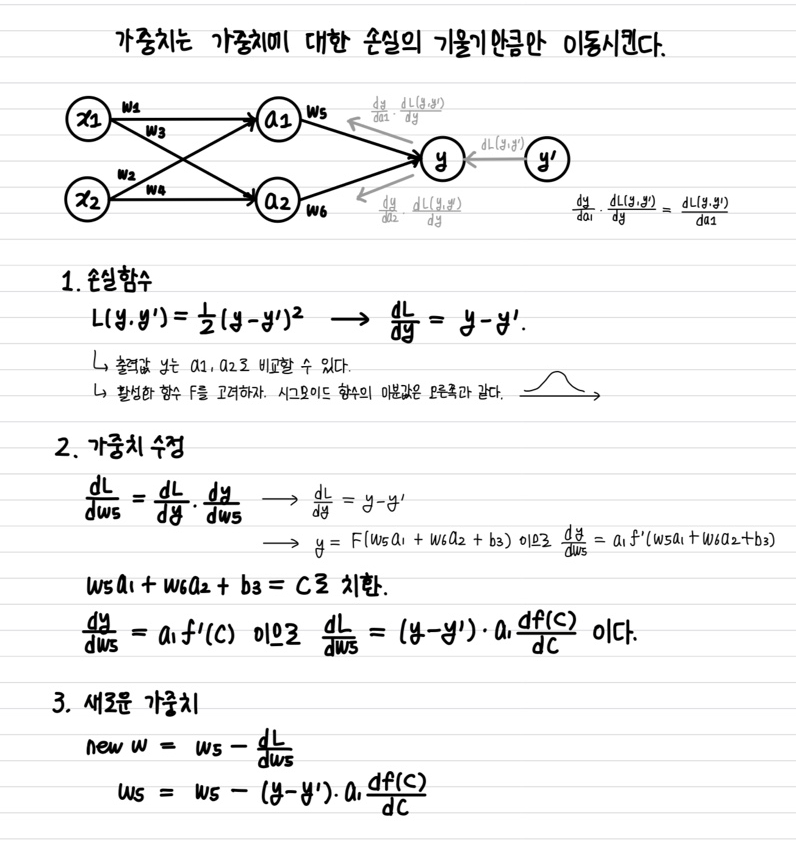 가중치는 가중치에 대한 손실의 기울기만큼만 이동시킨다.
x1 w1 a1 w5 dy/da1 · dL(y,y')/dy
w3
y dL(y,y') y'
w2
x2 w4 a2 w6 dy/da2 · dL(y,y')/dy
dy/da1 · dL(y,y')/dy = dL(y,y')/da1
1. 손실함수
L(y,y') = 1/2(y-y')² → dL/dy = y-y'.
↳ 출력값 y는 a1, a2로 비교할 수 있다.
↳ 활성화 함수 F를 고려하자. 시그모이드 함수의 미분값은 오른쪽과 같다.
2. 가중치 수정
dL/dw5 = dL/dy · dy/dw5 → dL/dy = y-y'
→ y = F(w5a1 + w6a2 + b3) 이므로 dy/dw5 = a1f'(w5a1 + w6a2+b3)
w5a1 + w6a2 + b3 = C로 치환.
dy/dw5 = a1f'(C) 이므로 dL/dw5 = (y-y') · a1 df(C)/dC 이다.
3. 새로운 가중치
new w = w5 - dL/dw5
w5 = w5 - (y-y') · a1 df(C)/dC